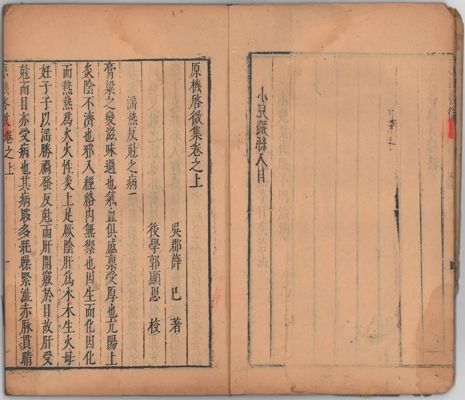 小兒㿀入目
原機啓微集卷之上
吳郡薛 己 著
後學郭顯恩 校
淫熱反尅之病一
膏粱之變滋味過也氣血俱盛稟受厚也亢陽上
炎陰不濟也邪入經絡內無禦也因生而化因化
而熱熱爲火火性炎上足厥陰肝爲木木生火母
妊子子以淫勝禍發反尅而肝開竅於目故肝受
尅而目亦受病也其病眵多眊矂緊澁赤脉貫睛
原機啓微卷之上
一